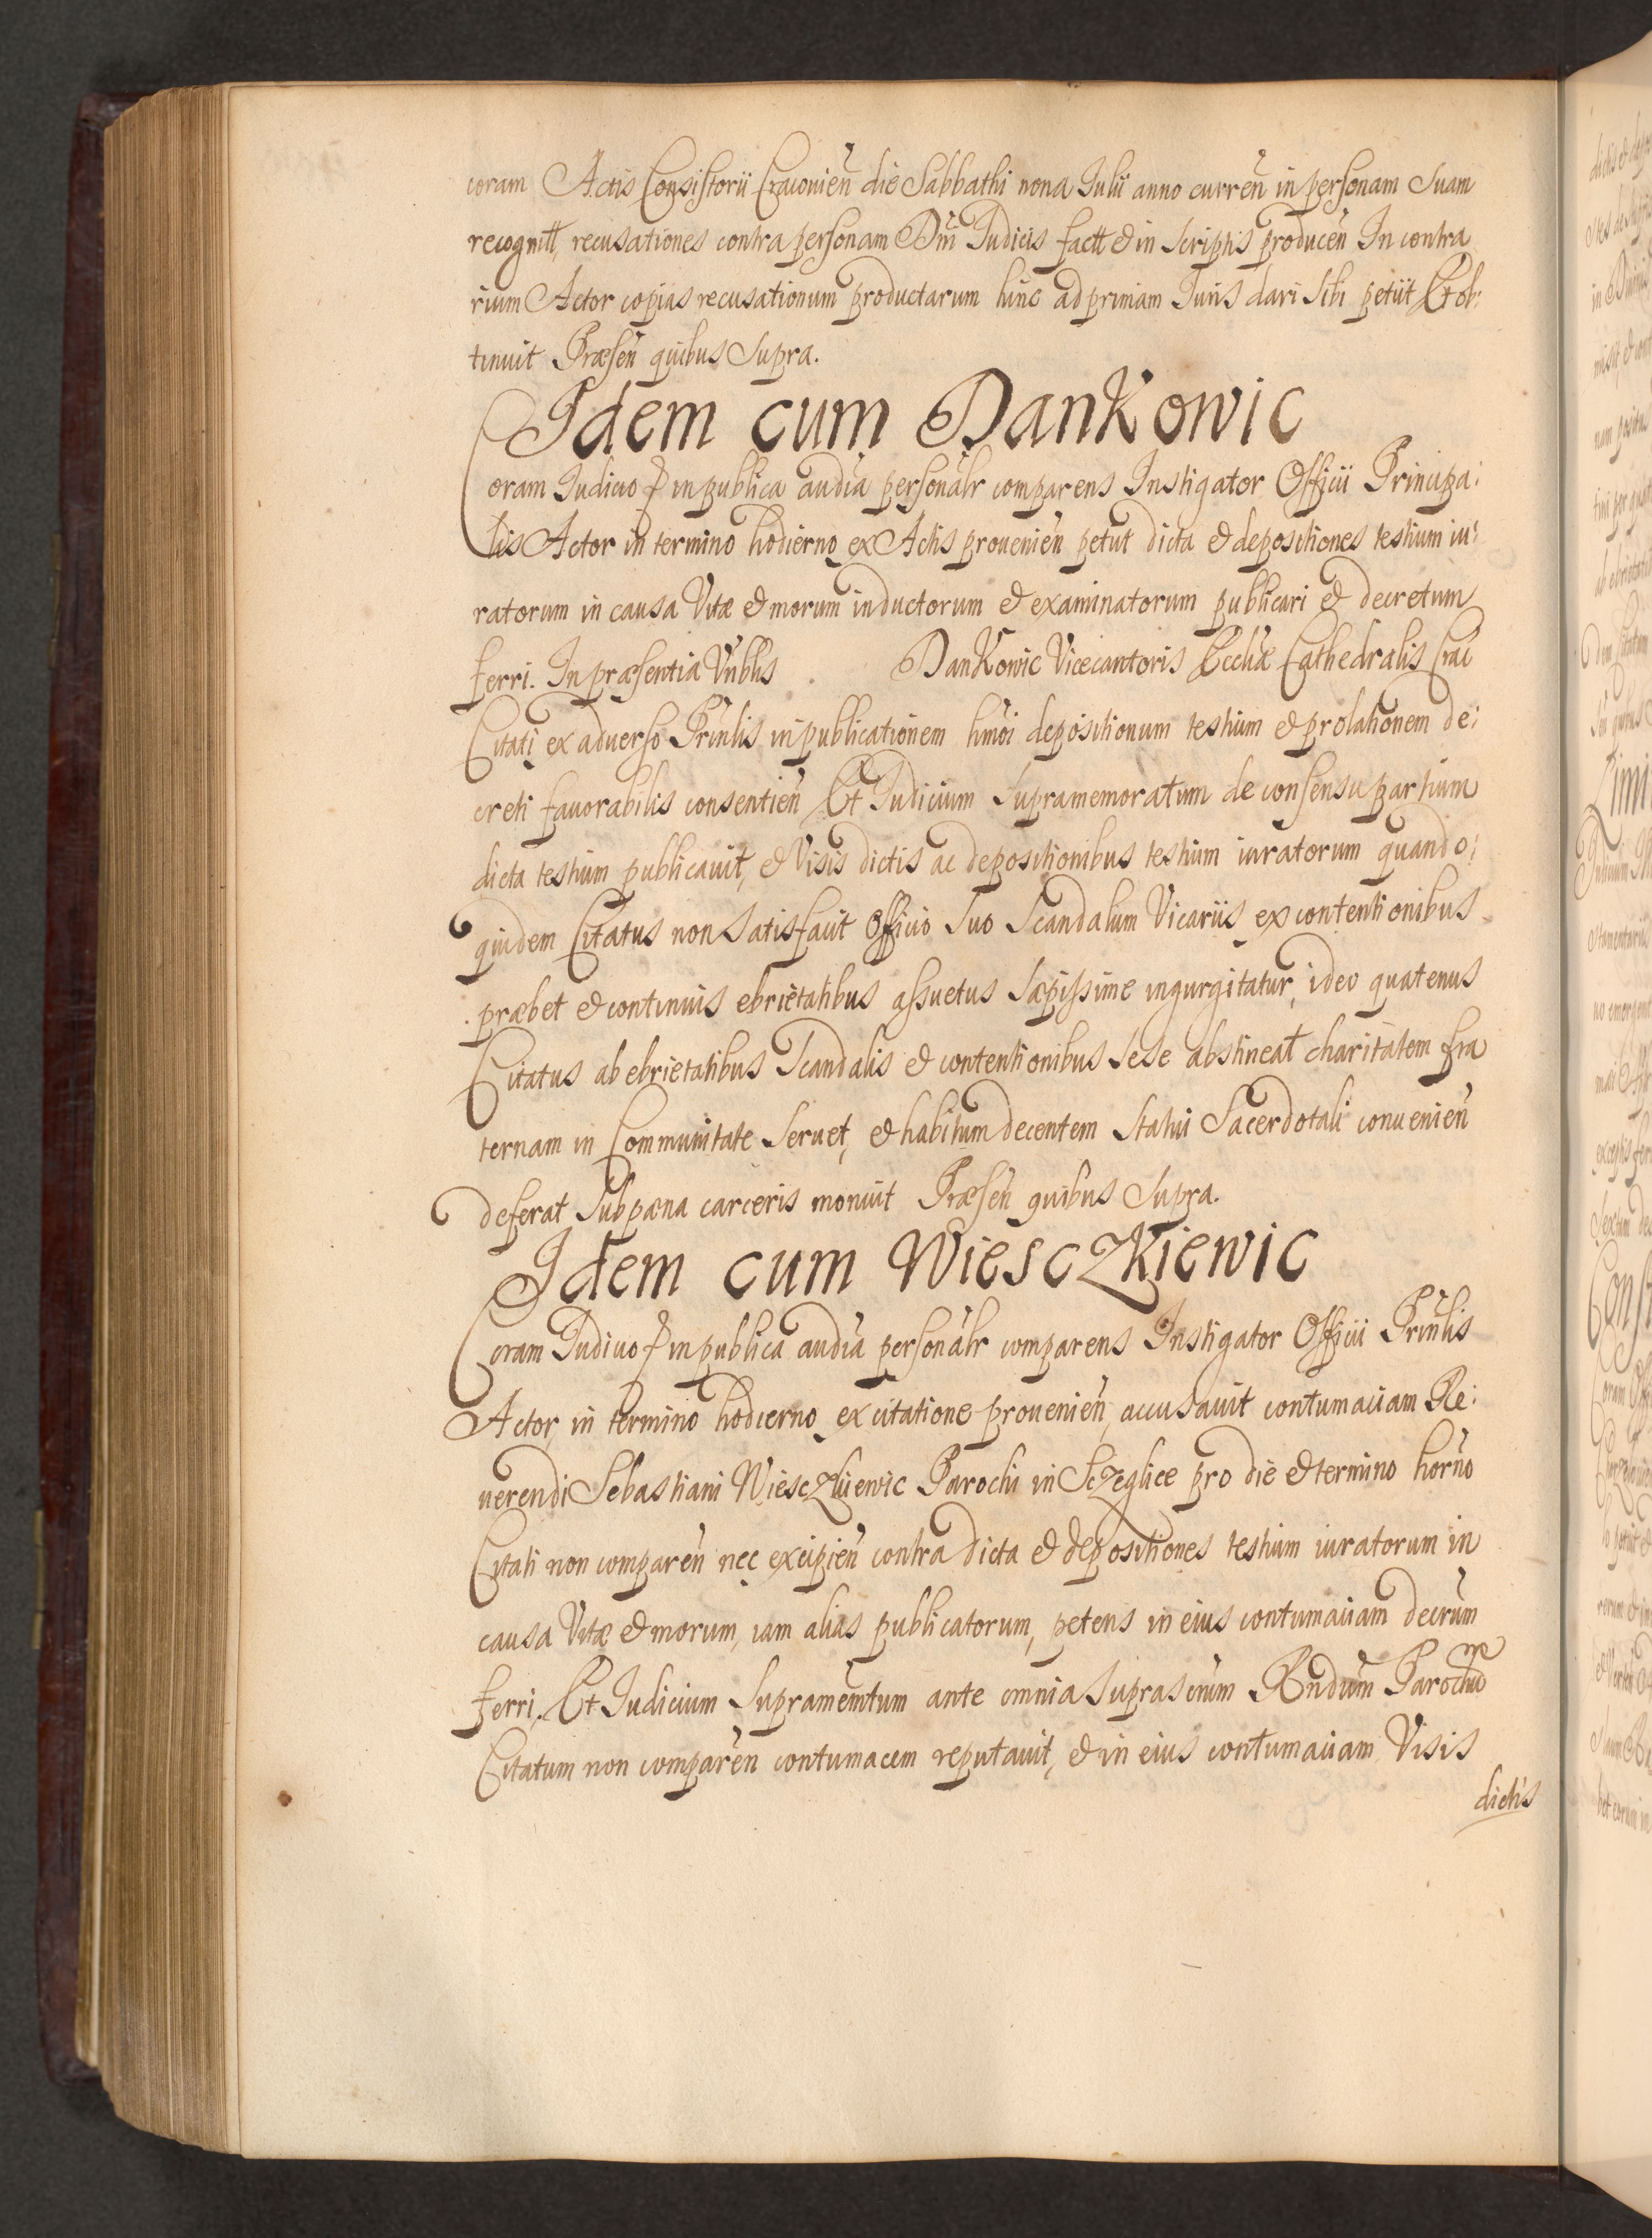 coram Actis Consistorii Cracovien̄ die Sabbathi nona Julii anno curren̄ in personam Suam
recognitt, recusationes contra personam Dn̄i Judicis factt & in scriptis producen̄ In contra
rium Actor copias recusationum productarum hinc ad primam Juris dari sibi petiit Et ob:
tinuit Præsen̄ quibus supra.
Idem cum DanKowic
Coram Judicio ꝑ in publica audīa personālr comparens Instigator Officii Principa:
lis Actor in termino hodierno ex Actis provenien̄ petiit dicta & depositiones testium iu:
ratorum in causa Vitæ & morum inductorum & examinatorum publicari & decretum
ferri. In præsentia Vn̄blis DanKowic Vicecantoris Eccliæ Cathedralis Crac̄
Citati ex adverso Prīnlis in publicationem hmōi depositionum testium & prolationem de:
creti favorabilis consentien̄ Et Judicium supramemoratum de consensu partium
dicta testium publicavit, & Visis dictis ac depositionibus testium iuratorum quando:
quidem Citatus non satisfacit Officio suo Scandalum Vicariis ex contentionibus
præbet & continuis ebrietatibus assuetus sæpissime ingurgitatur, ideo quatenus
Citatus ab ebrietatibus Scandalis & contentionibus sese abstineat charitatem fra
ternam in Communitate servet, & habitum decentem statui Sacerdotali convenien̄
deferat sub pæna carceris monuit Præsen̄ quibus supra.
Idem cum WiesczKiewic
Coram Judicio ꝑ in publica audīa personālr comparens Instigator Officii Prīnlis
Actor, in termino hodierno ex citatione provenien̄, accusavit contumaciam Re:
verendi Sebastiani Wiesczkiewic Parochi in Sczeglice pro die & termino horn̄o
Citati non comparen̄ nec excipien̄ contra dicta & depositiones testium iuratorum in
causa Vitæ & morum, iam alias publicatorum, petens in eius contumaciam decr̄um
ferri, Et Judicium supramemtum ante omnia suprascr̄um Rn̄dum Parochū
Citatum non comparen̄ contumacem reputavit, & in eius contumaciam Visis
dictis